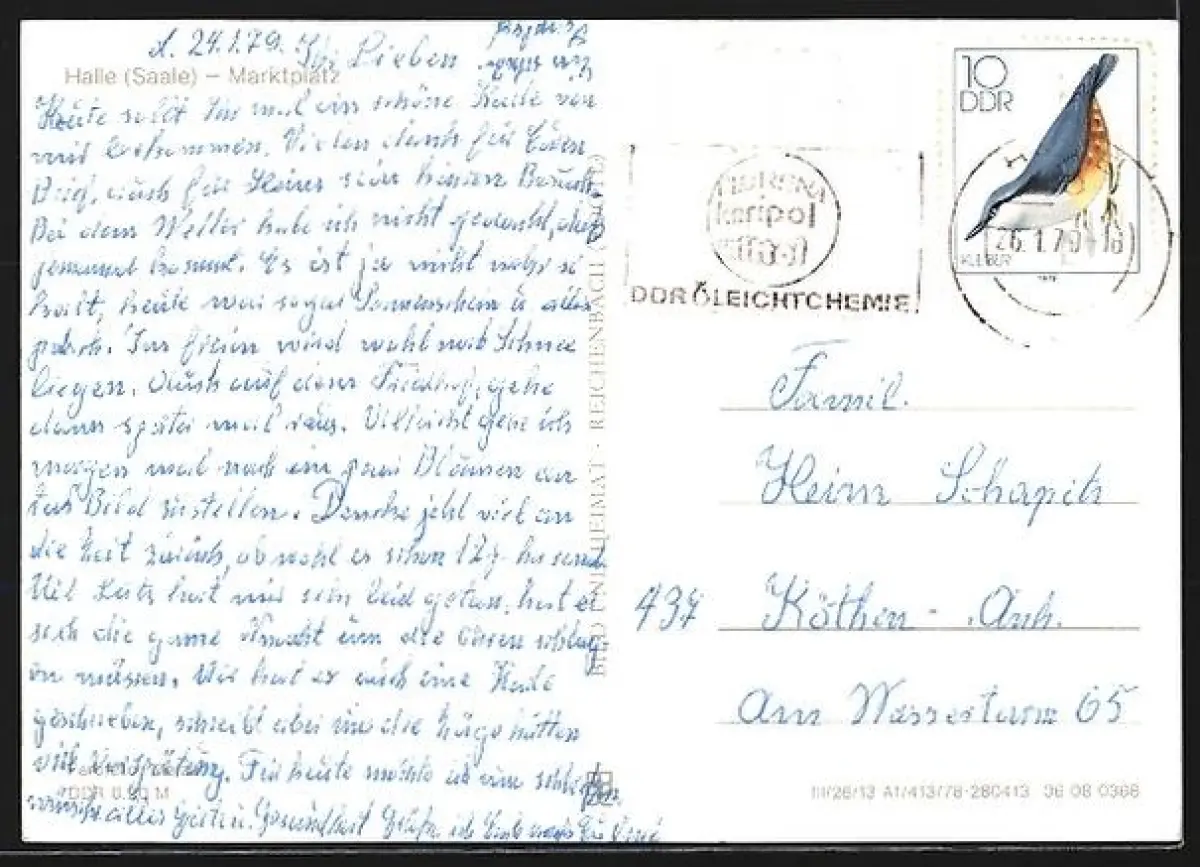 d. 24.1.79. Ihr Lieben
Halle (Saale) – Marktplatz
Heute sollt Ihr mal eine schöne Karte von
mir bekommen. Vielen dank für Euren
Brief, auch für Heins sein Besuch.
Bei dem Wetter habe ich nicht gedacht, das
jemand kommt. Es ist ja nicht mehr so
kalt, heute war sogar Sonnenschein u. alles
Im freien wird wohl noch Schnee
liegen. Auch auf dem Friedhof, gehe
dann später mal raus. Villeicht gehe ich
morgen mal noch ein paar Blumen an
das Bild zustellen. Dencke jetzt viel an
die Zeit zurück, ob wohl es schon 12 J. her sind.
Mit Lutz hat mir sein leid getan, hat er
sich die ganze Nacht um die Ohren schlag
en müssen. Mir hat er auch eine Karte
geschrieben, schreibt aber nur die Züge hatten
viel Verspätung. Für heute möchte ich nun schließen
wünsche alles Guten u. Gesundheit Grüße ich Euch
DDR 0.20 M
BILD UND HEIMAT · REICHENBACH
10
DDR
KLEIBER
26.1.79-18
karipol
DDR ÖLEICHTCHEMIE
Famil.
Heinr Schapitz
437 Köthen - Anh.
Am Wasserturm 65
III/26/13 A1/413/78-280413 36 08 0368